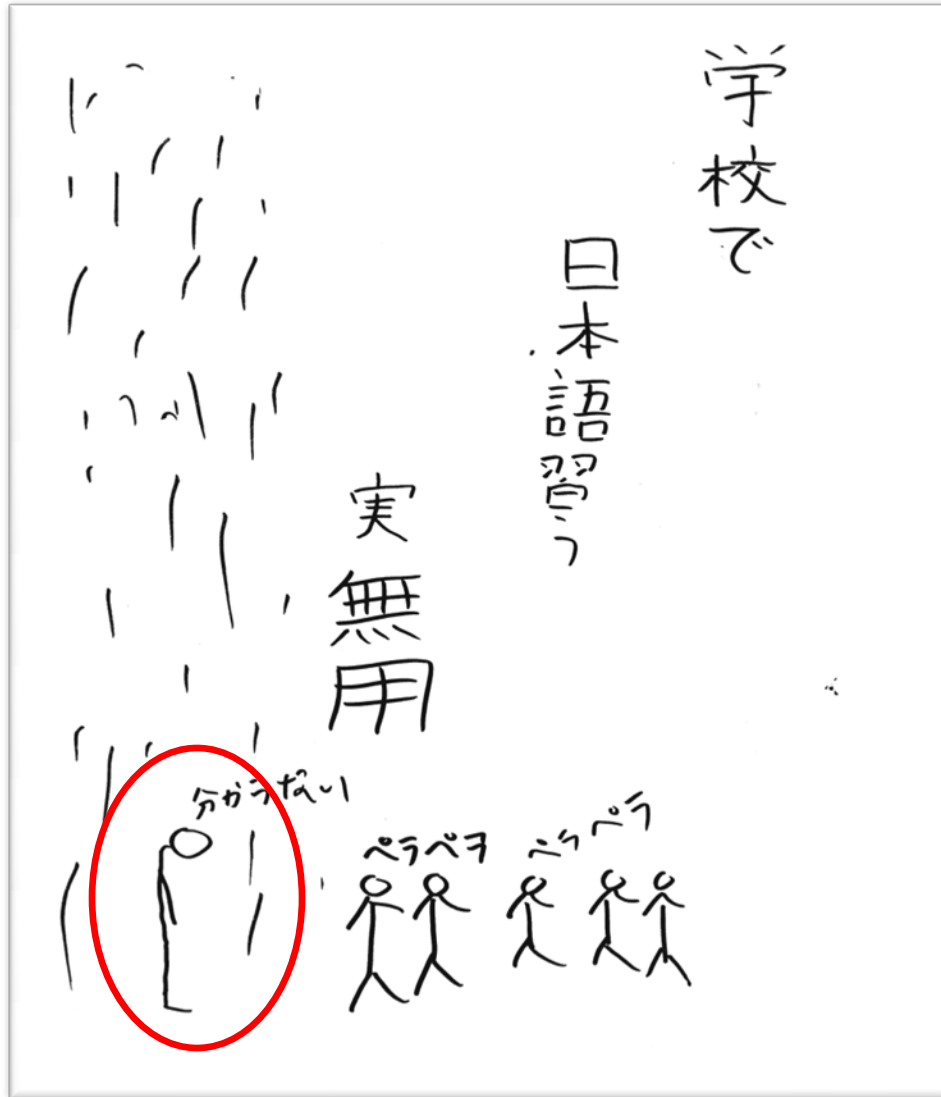 学校で
日本語習う
実無用
分からない
ペラペラ
ペラ
ペラ